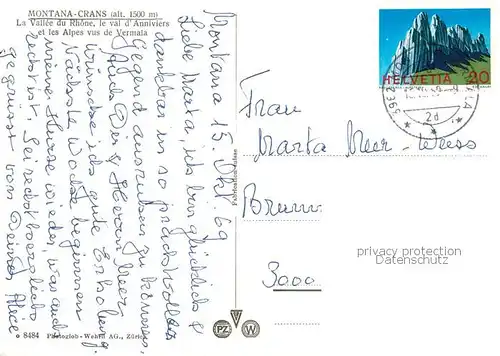 MONTANA-CRANS (alt. 1500 m)
La Vallée du Rhône, le val d'Anniviers
et les Alpes vus de Vermala
Montana 15. Okt 69
Liebe Marta, ich bin glücklich &
dankbar in so prachtvoller
Gegend ausruhen zu können,
Auch Dir & Herrn Meer
wünsche ich gute Erholung.
Nächste Woche beginnen
meine Kurse wieder, was auch
recht ist. Sei recht herzlich
gegrüsst von Deiner Alice
HELVETIA 20
3962
2d
Frau
Marta Meer-
Brunn
3000
privacy protection
Datenschutz
PZ W
8484 Photoglob-Wehrli AG., Zürich